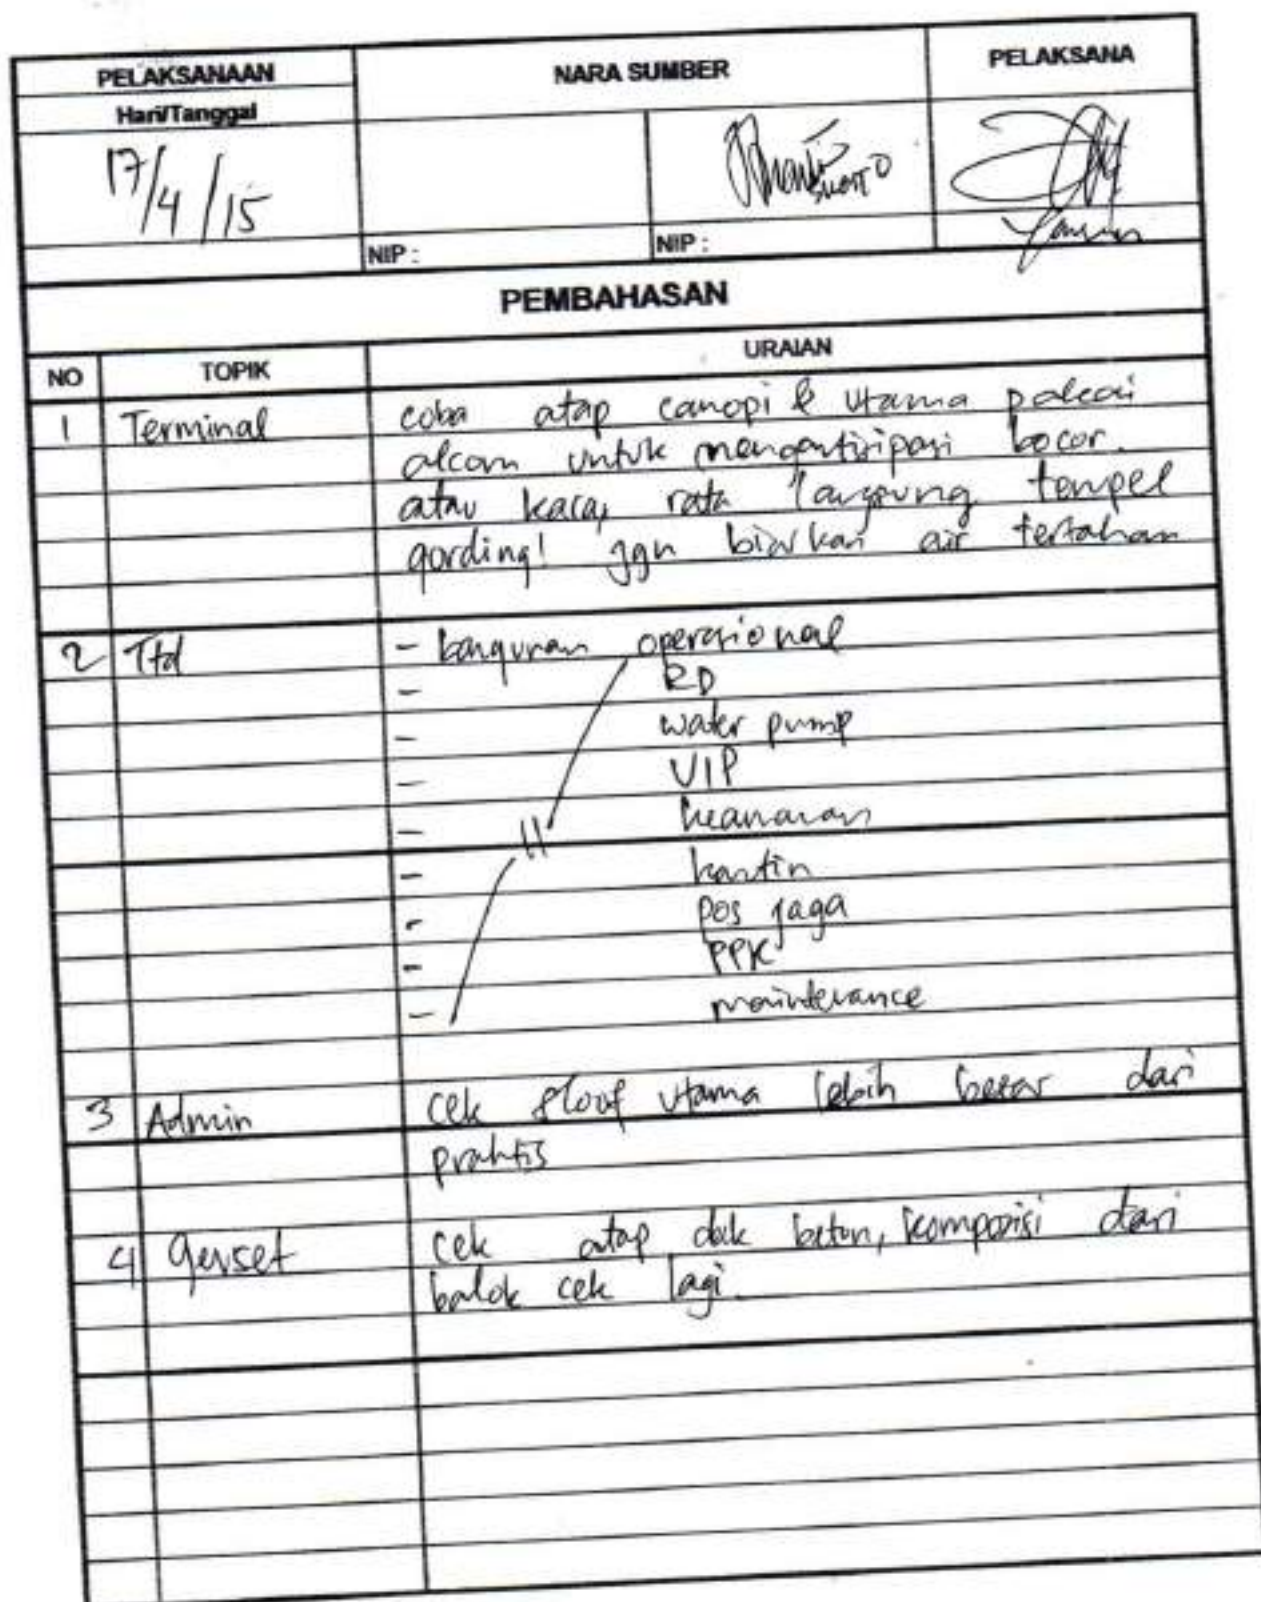 PELAKSANAAN NARA SUMBER PELAKSANA
Hari/Tanggal
17/4/15
NIP : NIP :
PEMBAHASAN
NO TOPIK URAIAN
1 Terminal coba atap canopi & utama pakai
alcom untuk mengantisipasi bocor.
atau kaca, rata langsung tempel
gording! jgn biarkan air tertahan
2 Ttd - bangunan operasional
- RD
- water pump
- VIP
- " keamanan
- kantin
- pos jaga
- PPK
- maintenance
3 Admin cek sloof utama lebih besar dari
praktis
4 genset cek atap dak beton, komposisi dari
balok cek lagi